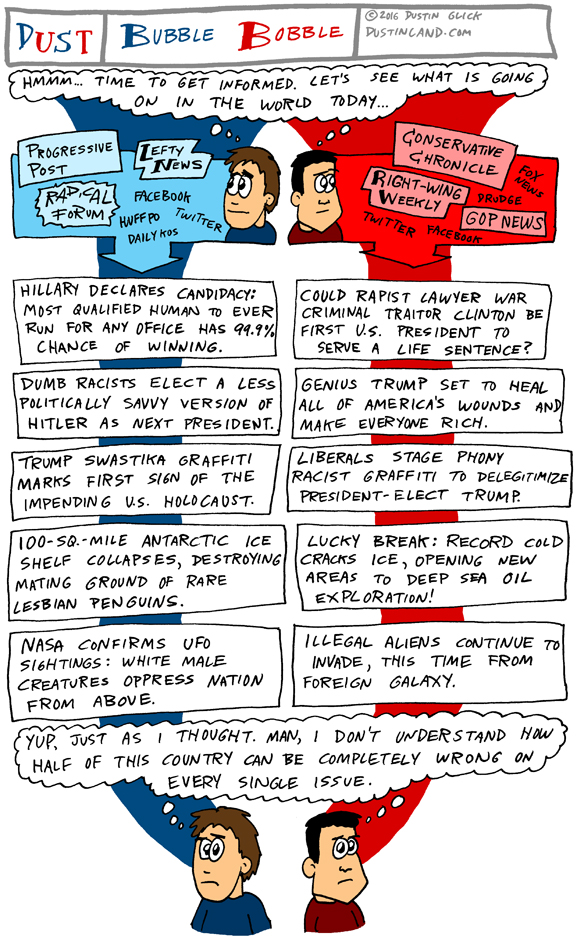 DUST
BUBBLE BOBBLE
©2016 DUSTIN GLICK
DUSTINLAND.COM
HMMM... TIME TO GET INFORMED. LET'S SEE WHAT IS GOING
ON IN THE WORLD TODAY...
PROGRESSIVE
POST
LEFTY
NEWS
RADICAL
FORUM
FACEBOOK
HUFFPO
TWITTER
DAILY KOS
CONSERVATIVE
CHRONICLE
FOX
NEWS
RIGHT-WING
WEEKLY
DRUDGE
GOP NEWS
TWITTER
FACEBOOK
HILLARY DECLARES CANDIDACY:
MOST QUALIFIED HUMAN TO EVER
RUN FOR ANY OFFICE HAS 99.9%
CHANCE OF WINNING.
COULD RAPIST LAWYER WAR
CRIMINAL TRAITOR CLINTON BE
FIRST U.S. PRESIDENT TO
SERVE A LIFE SENTENCE?
DUMB RACISTS ELECT A LESS
POLITICALLY SAVVY VERSION OF
HITLER AS NEXT PRESIDENT.
GENIUS TRUMP SET TO HEAL
ALL OF AMERICA'S WOUNDS AND
MAKE EVERYONE RICH.
TRUMP SWASTIKA GRAFFITI
MARKS FIRST SIGN OF THE
IMPENDING U.S. HOLOCAUST.
LIBERALS STAGE PHONY
RACIST GRAFFITI TO DELEGITIMIZE
PRESIDENT-ELECT TRUMP.
100-SQ.-MILE ANTARCTIC ICE
SHELF COLLAPSES, DESTROYING
MATING GROUND OF RARE
LESBIAN PENGUINS.
LUCKY BREAK: RECORD COLD
CRACKS ICE, OPENING NEW
AREAS TO DEEP SEA OIL
EXPLORATION!
NASA CONFIRMS UFO
SIGHTINGS: WHITE MALE
CREATURES OPPRESS NATION
FROM ABOVE.
ILLEGAL ALIENS CONTINUE TO
INVADE, THIS TIME FROM
FOREIGN GALAXY.
YUP, JUST AS I THOUGHT. MAN, I DON'T UNDERSTAND HOW
HALF OF THIS COUNTRY CAN BE COMPLETELY WRONG ON
EVERY SINGLE ISSUE.